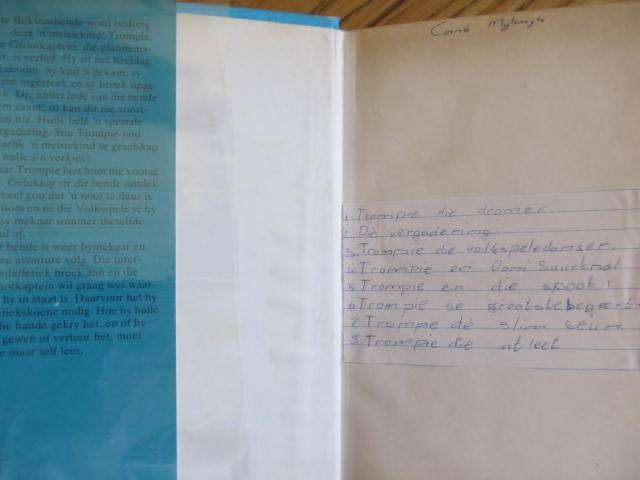 ne Boksombende word bedreig
deur 'n meisiekind! Trompie,
e Grootkaptein, die plannema-
r, is verlief. Hy sit net heeldag
droom. Sy kuif is gekam, sy
mp ingesteek en sy broek opge
s. Die ander lede van die bende
em saam: so kan dit nie voort-
an nie. Hulle belê 'n spesiale
rgadering. Sou Trompie nou
aarlik 'n meisiekind se geselskap
hulle s'n verkies?
aar Trompie laat hom nie voorsê
. Gelukkig vir die bende ontdek
heel gou dat 'n nooi te duur is
hom en ná die Volksspele sê hy
sy mekaar sommer dieselfde
nd af.
e bende is weer bymekaar en
we avonture volg. Die inter-
olatletiek breek aan en die
ootkaptein wil graag wys waar-
hy in staat is. Daarvoor het hy
etiekskoene nodig. Hoe hy hulle
die hande gekry het, en of hy
gewen of verloor het, moet
e maar self lees.
1. Trompie die dromer.
2. Dè vergadering
3. Trompie die volkspeledanser.
4. Trompie en Oom
5. Trompie en die spook!
6. Trompie se
7. Trompie dè slim seun
8. Trompie die atleet